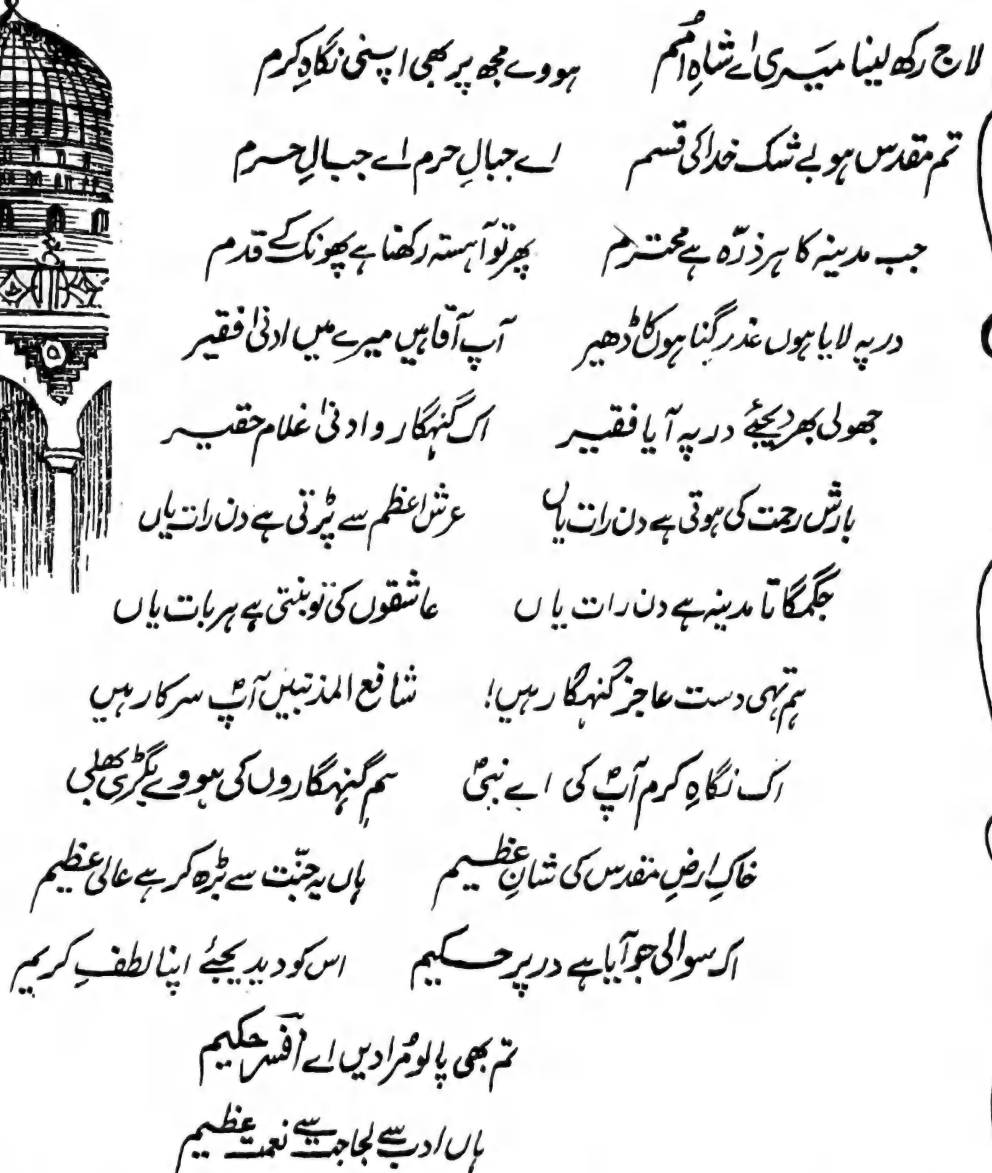 لاج رکھ لینا میری اے شاہِ اُمم ہووے مجھ پر بھی اپنی نگاہِ کرم
تم مقدس ہو بے شک خدا کی قسم اے جبالِ حرم اے جبالِ حرم
جب مدینہ کا ہر ذرّہ ہے محترم پھر تو آہستہ رکھنا ہے پھونک کے قدم
در پہ لایا ہوں عذر گنا ہوں کا ڈھیر آپ آقا ہیں میرے میں ادنیٰ فقیر
جھولی بھر دیجئے در پہ آیا فقیر اک گنہگار و ادنیٰ غلام حقیر
بارش رحمت کی ہوتی ہے دن رات یاں عرش اعظم سے پڑتی ہے دن رات یاں
جگمگاتا مدینہ ہے دن رات یاں عاشقوں کی تو بنتی ہے ہر بات یاں
ہم تہی دست عاجز گنہگار ہیں! شافع المذنبیں آپؐ سرکار ہیں
اک نگاہِ کرم آپؐ کی اے نبیؐ ہم گنہگاروں کی ہووے بگڑی بھلی
خاکِ ارضِ مقدس کی شانِ عظیم ہاں یہ جنّت سے بڑھ کر ہے عالی عظیم
اک سوالی جو آیا ہے در پر حکیم اس کو دیدیجئے اپنا لطفِ کریم
تم بھی پا لو مُرادیں اے افسر حکیم
ہاں ادب سے لجاجت سے نعمت عظیم